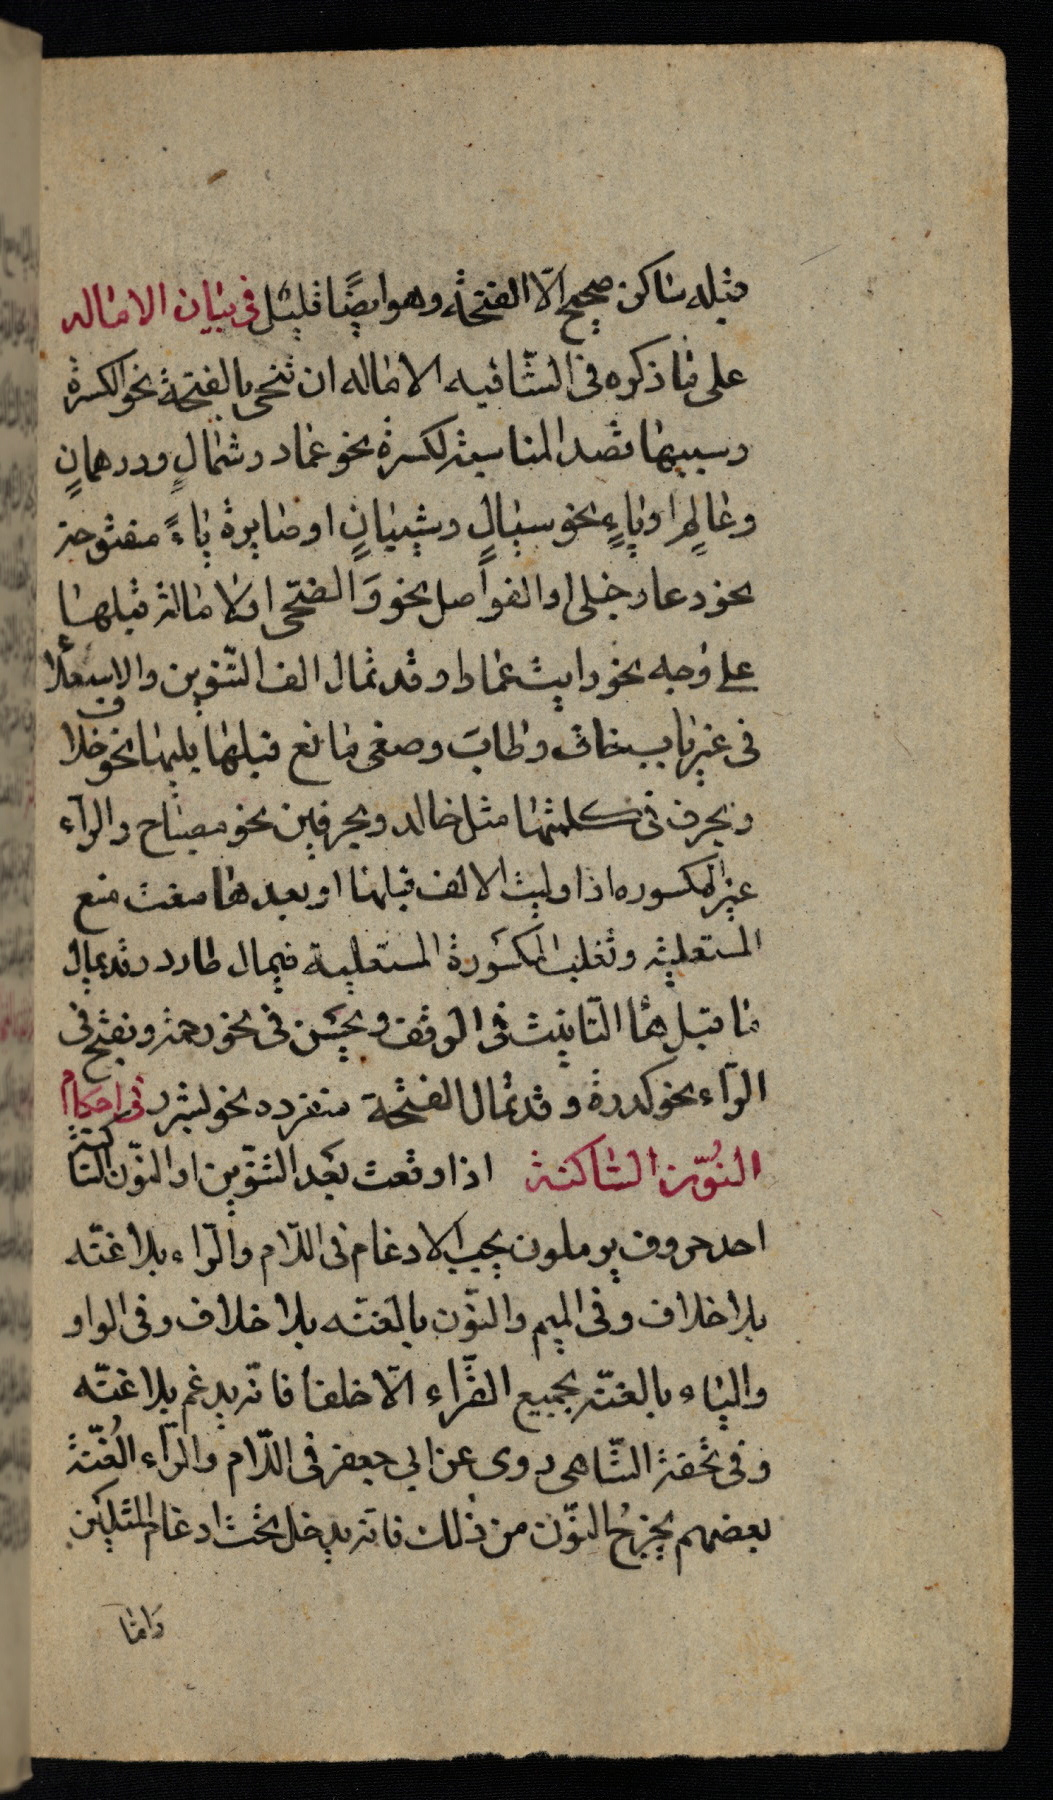 قبله ساكن صحيح الّا الفتحة وهو ايضًا قليل في بيان الاماله
على ما ذكره فى الشّافيه الاماله ان تنحى بالفتحة نحو الكسرة
وسببها قصد المناسبة لكسرة نحو عماد وشمالٍ ودرهمانِ
وعالمٍ او ياءٍ نحو سيالٍ وشيبانٍ او صايرة ياءً مفتوحة
نحو دعا وحبلى او الفواصل نحو وَالضّحى او لامالة قبلها
على وجه نحو رايت عمادا وقد تمال الف التّنوين والاستعلاء
فى غير باب خاف وطابَ وصغى مانع قبلها يليها نحو خلا
وبحرف فى كلمتها مثل خالد وبحرفين نحو مصباح والرّاء
غير المكسوره اذا وليت الالف قبلها او بعدها منعت منع
المستعلية وتغلب المكسورة المستعلية فيمال طارد وقد يمال
ما قبل هاء التّانيث فى الوقف ويحسن فى نحو رحمة ويقبح فى
الرّاء نحو كدرة وقد تمال الفتحة منفرده نحو لشرر فى احكام
النوّن السّاكنة اذا وقعت بَعْد التّنوّين او النوّن السّاكنة
احد حروف يوملون يجب الادغام فى اللّام والرّاء بلا غنّه
بلا خلاف وفى الميم والنوّن بالغنّه بلا خلاف وفى الواو
والياء بالغنّة لجميع القرّاء الّا خلفا فانّه يدغم بلا غنّه
وفى تحفة الشّاهى روى عن ابى جعفر فى اللّام والرّاء الغُنّةً
بعضهم يخرجُ النوّن من ذلك فانّه يدخل تحت ادغام المثلين
وَامّا